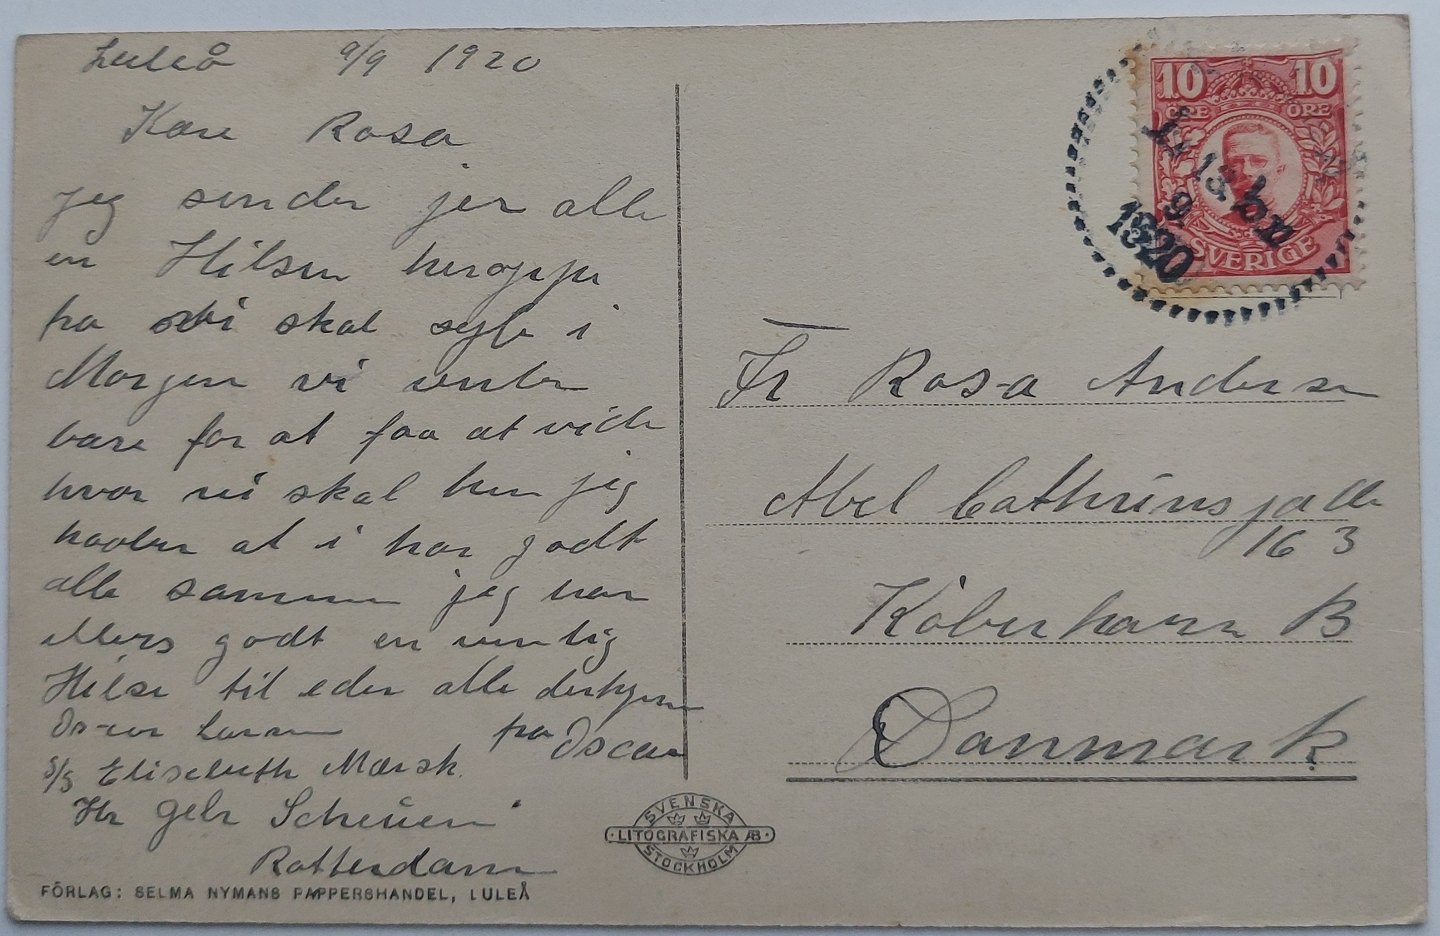 Luleå 9/9 1920
Kære Rosa
jeg sender jer alle
en Hilsen heroppe
fra vi skal sejle i
Morgen vi venter
bare for at faa at vide
hvor vi skal hen jeg
haaber at i har godt
alle sammen jeg har
ellers godt en venlig
Hilsen til eder alle derhjemme
fra Oscar
Oscar Larsen
S/S Elisabeth Mærsk
Hr Gebr Scheuer
Rotterdam
FÖRLAG: SELMA NYMANS PAPPERSHANDEL, LULEÅ
SVENSKA
LITOGRAFISKA AB
STOCKHOLM
10 10
ÖRE ÖRE
SVERIGE
13
9
1920
Fr Rosa Andersen
Abel Cathrinsgade
16 3
København B
Danmark